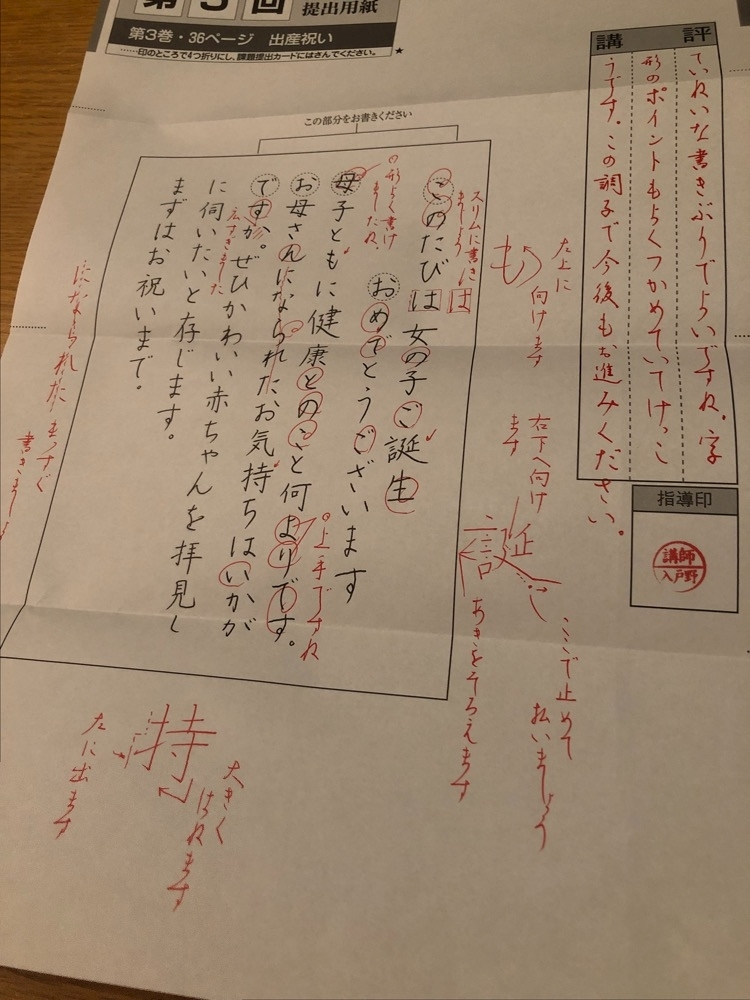 第5回
提出用紙
第3巻・36ページ 出産祝い
……印のところで4つ折りにし、課題提出カードにはさんでください。
★
講評
ていねいな書きぶりでよいですね。字
形のポイントもよくつかめていてけっこ
うです。この調子で今後もお進みください。
指導印
講師
入戸野
この部分をお書きください
このたびは女の子ご誕生
おめでとうございます
母子ともに健康とのこと何よりです。
お母さんになられたお気持ちはいかが
ですか。ぜひかわいい赤ちゃんを拝見し
に伺いたいと存じます。
まずはお祝いまで。
スリムに書き
ましょう
は
の形よく書け
ましたね。
広すぎました
上手ですね
も
左上に
向けます
右下へ向け
ます
誕
ここで止めて
払いましょう
あきをそろえます
持
大きく
はねます
左に出ます
になられた
まっすぐ
書きましょう